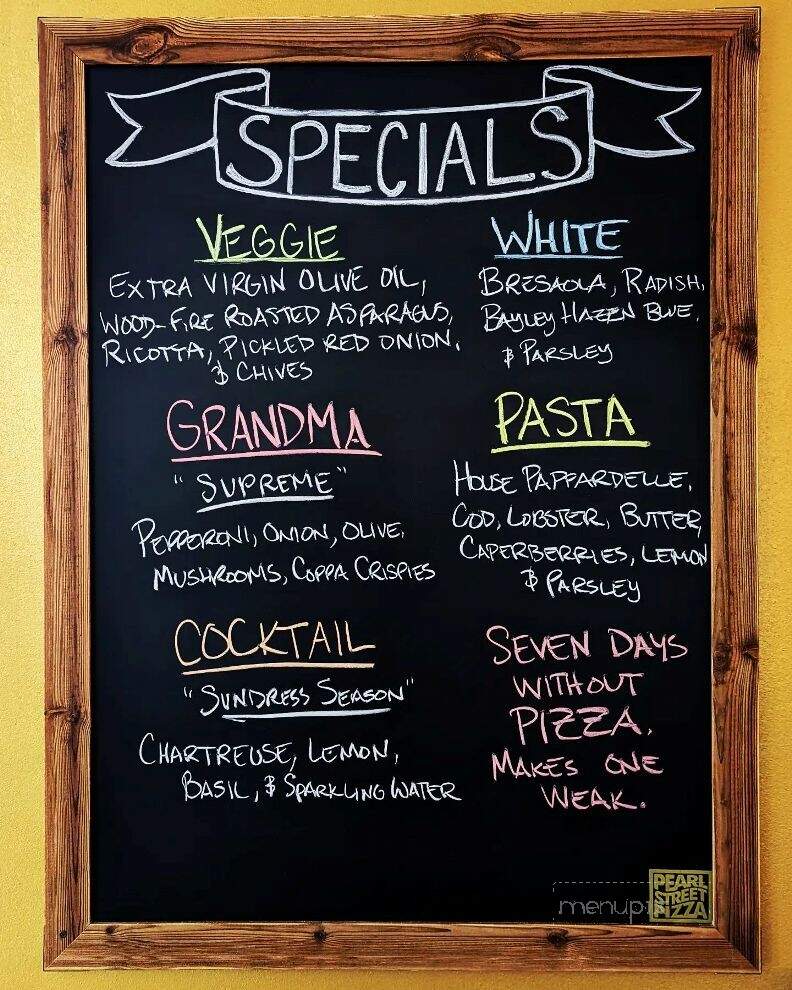 SPECIALS
VEGGIE
EXTRA VIRGIN OLIVE OIL,
WOOD-FIRE ROASTED ASPARAGUS,
RICOTTA, PICKLED RED ONION,
& CHIVES
WHITE
BRESAOLA, RADISH,
BAYLEY HAZEN BLUE,
& PARSLEY
GRANDMA
"SUPREME"
PEPPERONI, ONION, OLIVE,
MUSHROOMS, COPPA CRISPIES
PASTA
HOUSE PAPPARDELLE,
COD, LOBSTER, BUTTER,
CAPERBERRIES, LEMON
& PARSLEY
COCKTAIL
"SUNDRESS SEASON"
CHARTREUSE, LEMON,
BASIL, & SPARKLING WATER
SEVEN DAYS
WITHOUT
PIZZA.
MAKES ONE
WEAK.
PEARL
STREET
PIZZA